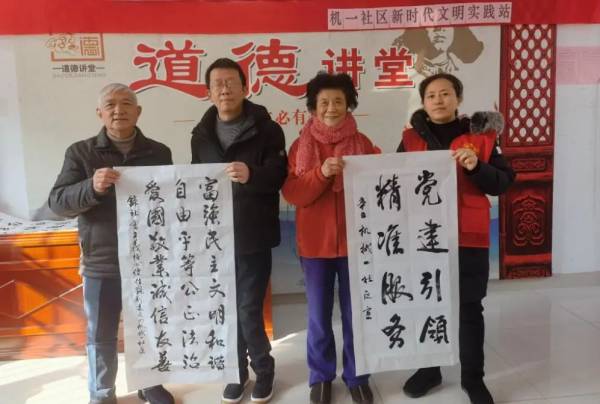 机一社区新时代文明实践站
一道德讲堂一
道德讲堂
必有
富强民主文明和谐
自由平等公正法治
爱國敬業誠信友善
党建引領
精准服务